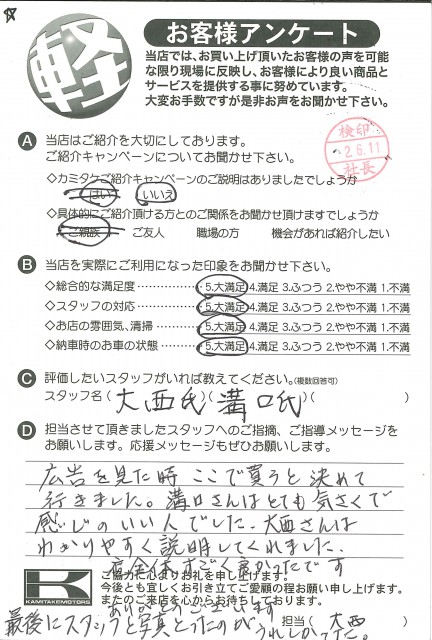 軽
お客様アンケート
当店では、お買い上げ頂いたお客様の声を可能
な限り現場に反映し、お客様により良い商品と
サービスを提供する事に努めています。
大変お手数ですが是非お声をお聞かせ下さい。
検印
2.6.11
社長
A 当店はご紹介を大切にしております。
ご紹介キャンペーンについてお聞かせ下さい。
◇カミタケご紹介キャンペーンのご説明はありましたでしょうか
はい いいえ
◇具体的にご紹介頂ける方とのご関係をお聞かせ頂けますでしょうか
ご親族 ご友人 職場の方 機会があれば紹介したい
B 当店を実際にご利用になった印象をお聞かせ下さい。
◇総合的な満足度 ………… 5.大満足 4.満足 3.ふつう 2.やや不満 1.不満
◇スタッフの対応 ………… 5.大満足 4.満足 3.ふつう 2.やや不満 1.不満
◇お店の雰囲気、清掃 ……… 5.大満足 4.満足 3.ふつう 2.やや不満 1.不満
◇納車時のお車の状態 ……… 5.大満足 4.満足 3.ふつう 2.やや不満 1.不満
C 評価したいスタッフがいれば教えてください。(複数回答可)
スタッフ名 ( 大西氏 )( 溝口氏 )( )
D 担当させて頂きましたスタッフへのご指摘、ご指導メッセージを
お願いします。応援メッセージもぜひお願いします。
広告を見た時 ここで買うと決めて
行きました。溝口さんはとても気さくで
感じのいい人でした。大西さんは
わかりやすく説明してくれました。
店全体すごく良かったです
K
KAMITAKE MOTORS
ご協力に心よりお礼を申し上げます。
今後とも宜しくお引き立てご愛顧の程お願い申し上げます。
またのご来店を心からお待ちしております。
ありがとうございます
担当 ( 大西 )
最後にスタッフと写真とったのがうれしかったです。